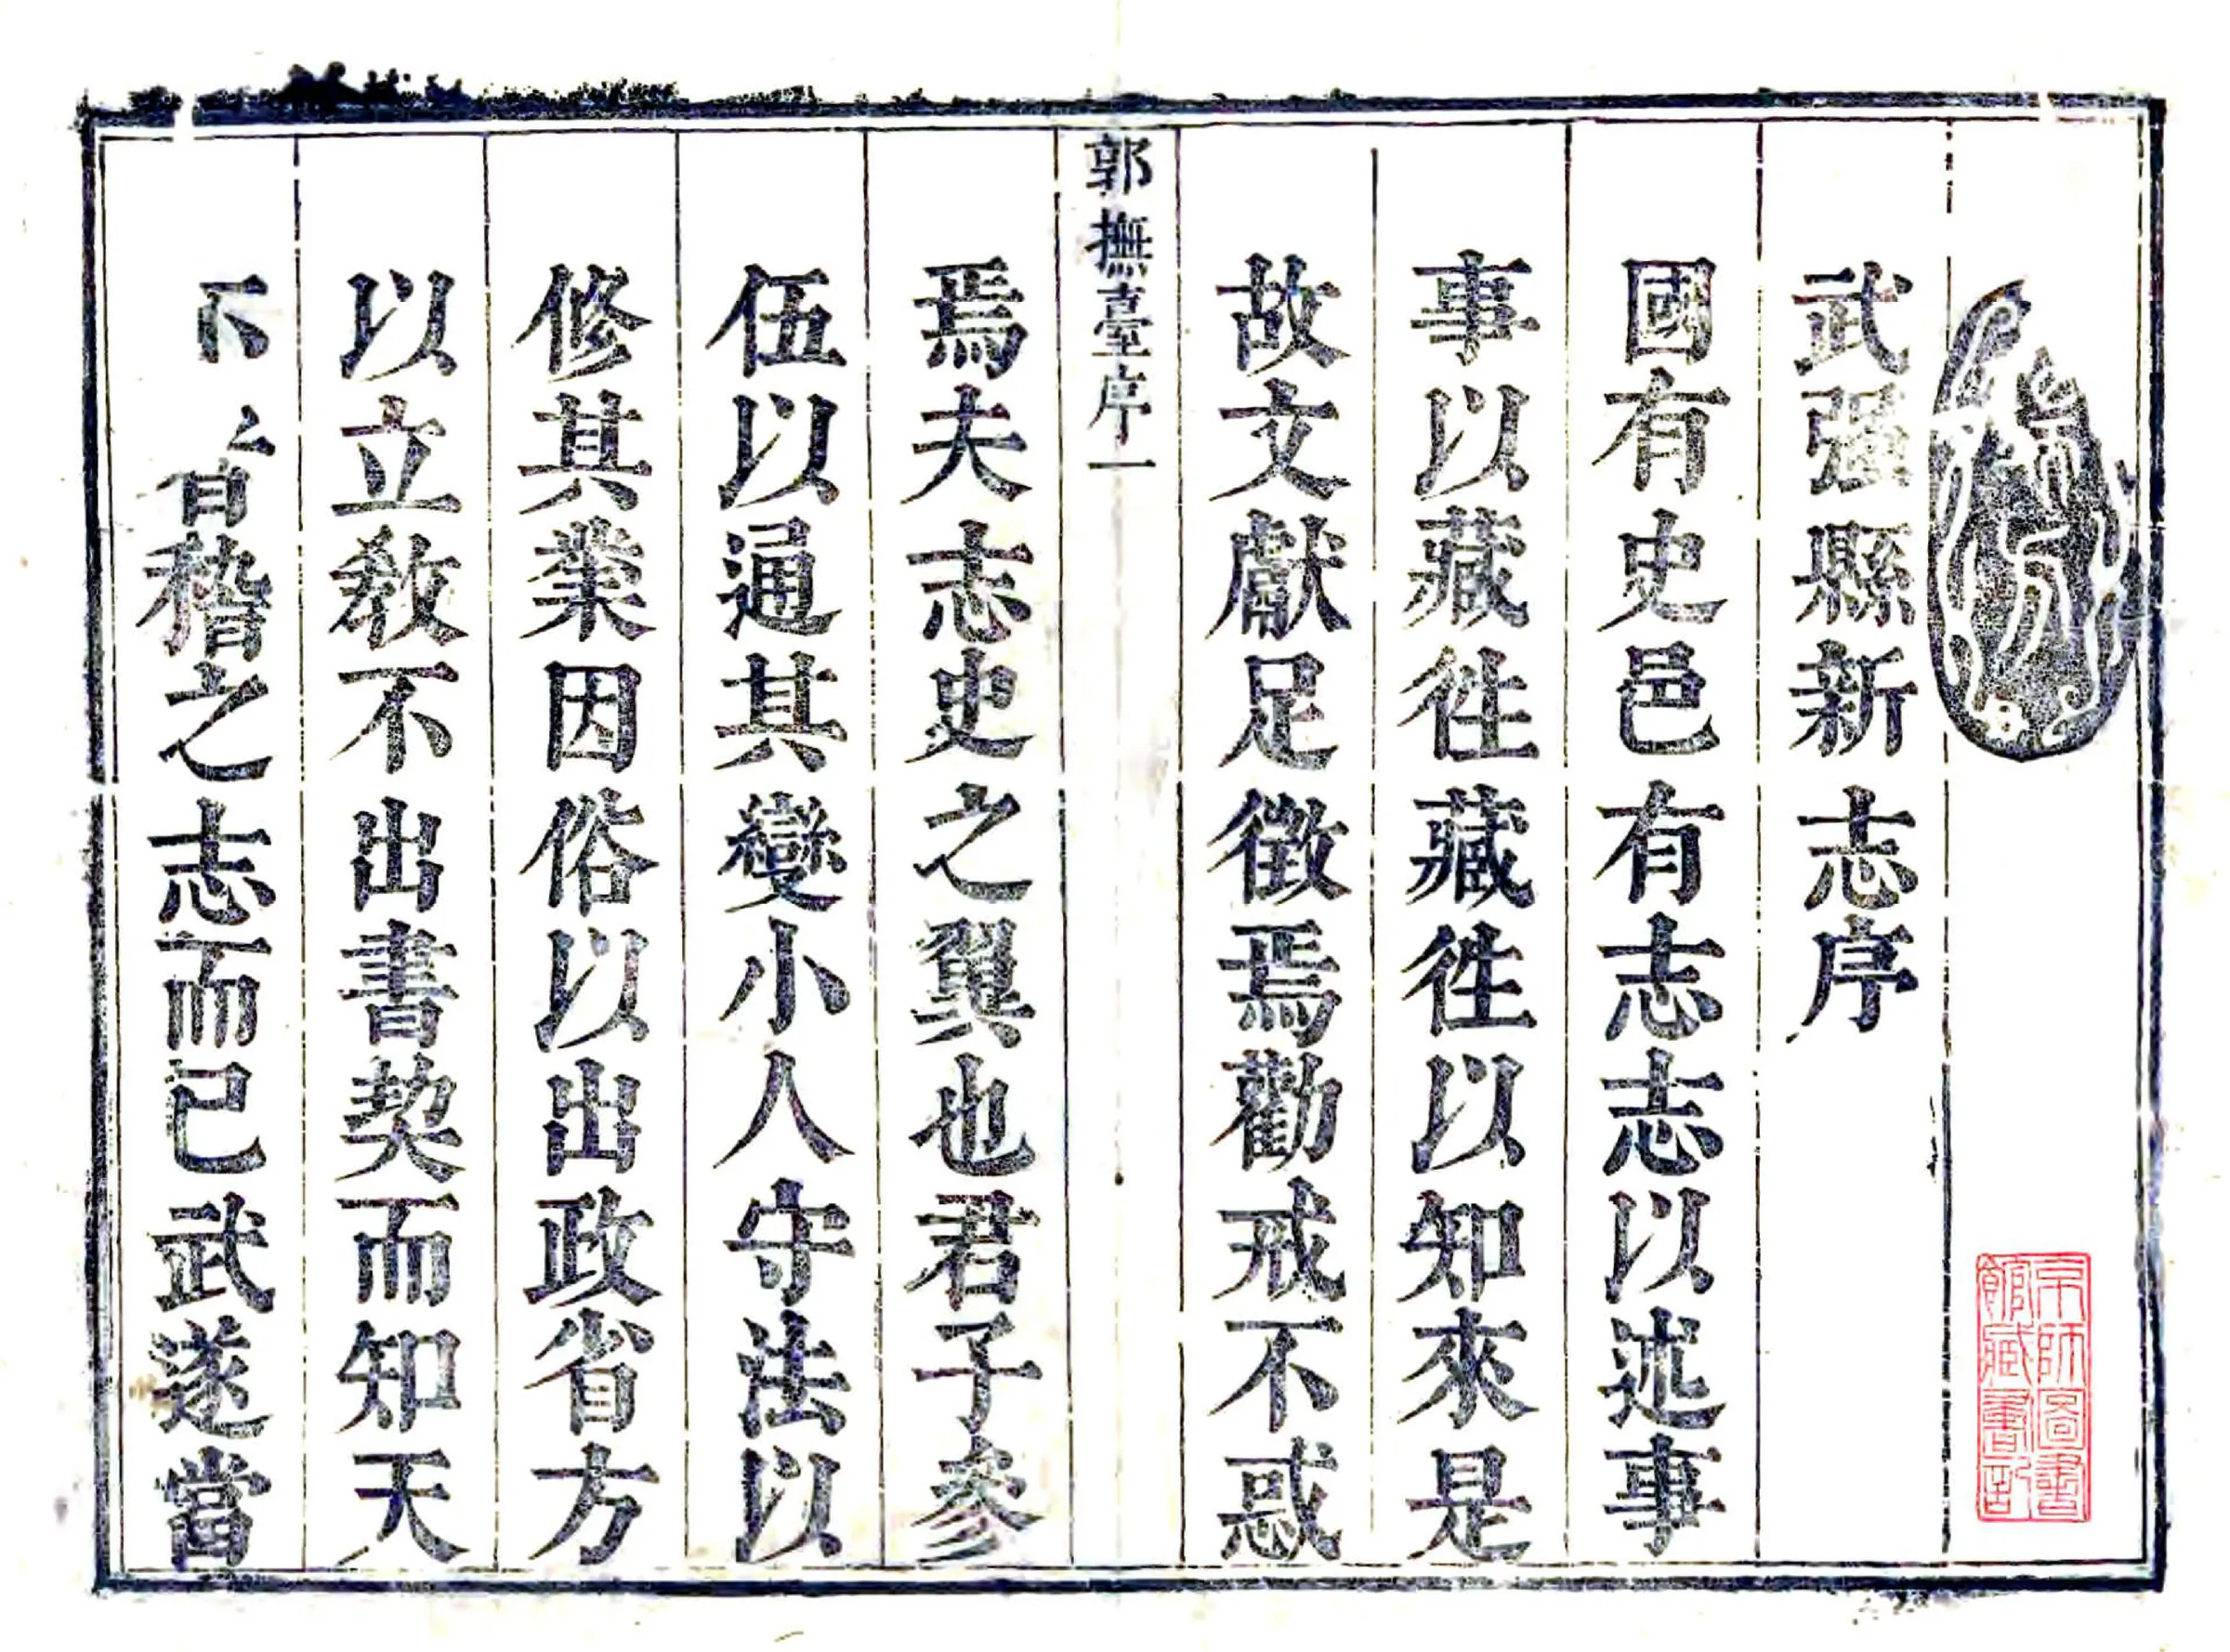 武強縣新志序
國有史邑有志志以述事
事以藏徃藏徃以知來是
故文獻足徵焉勸戒不惑
郭撫臺序一
焉夫志史之翼也君子參
伍以通其變小人守法以
修其業因俗以出政省方
以立敎不出書契而知天
下 稽之志而已武遂當
京師圖書
館藏書記